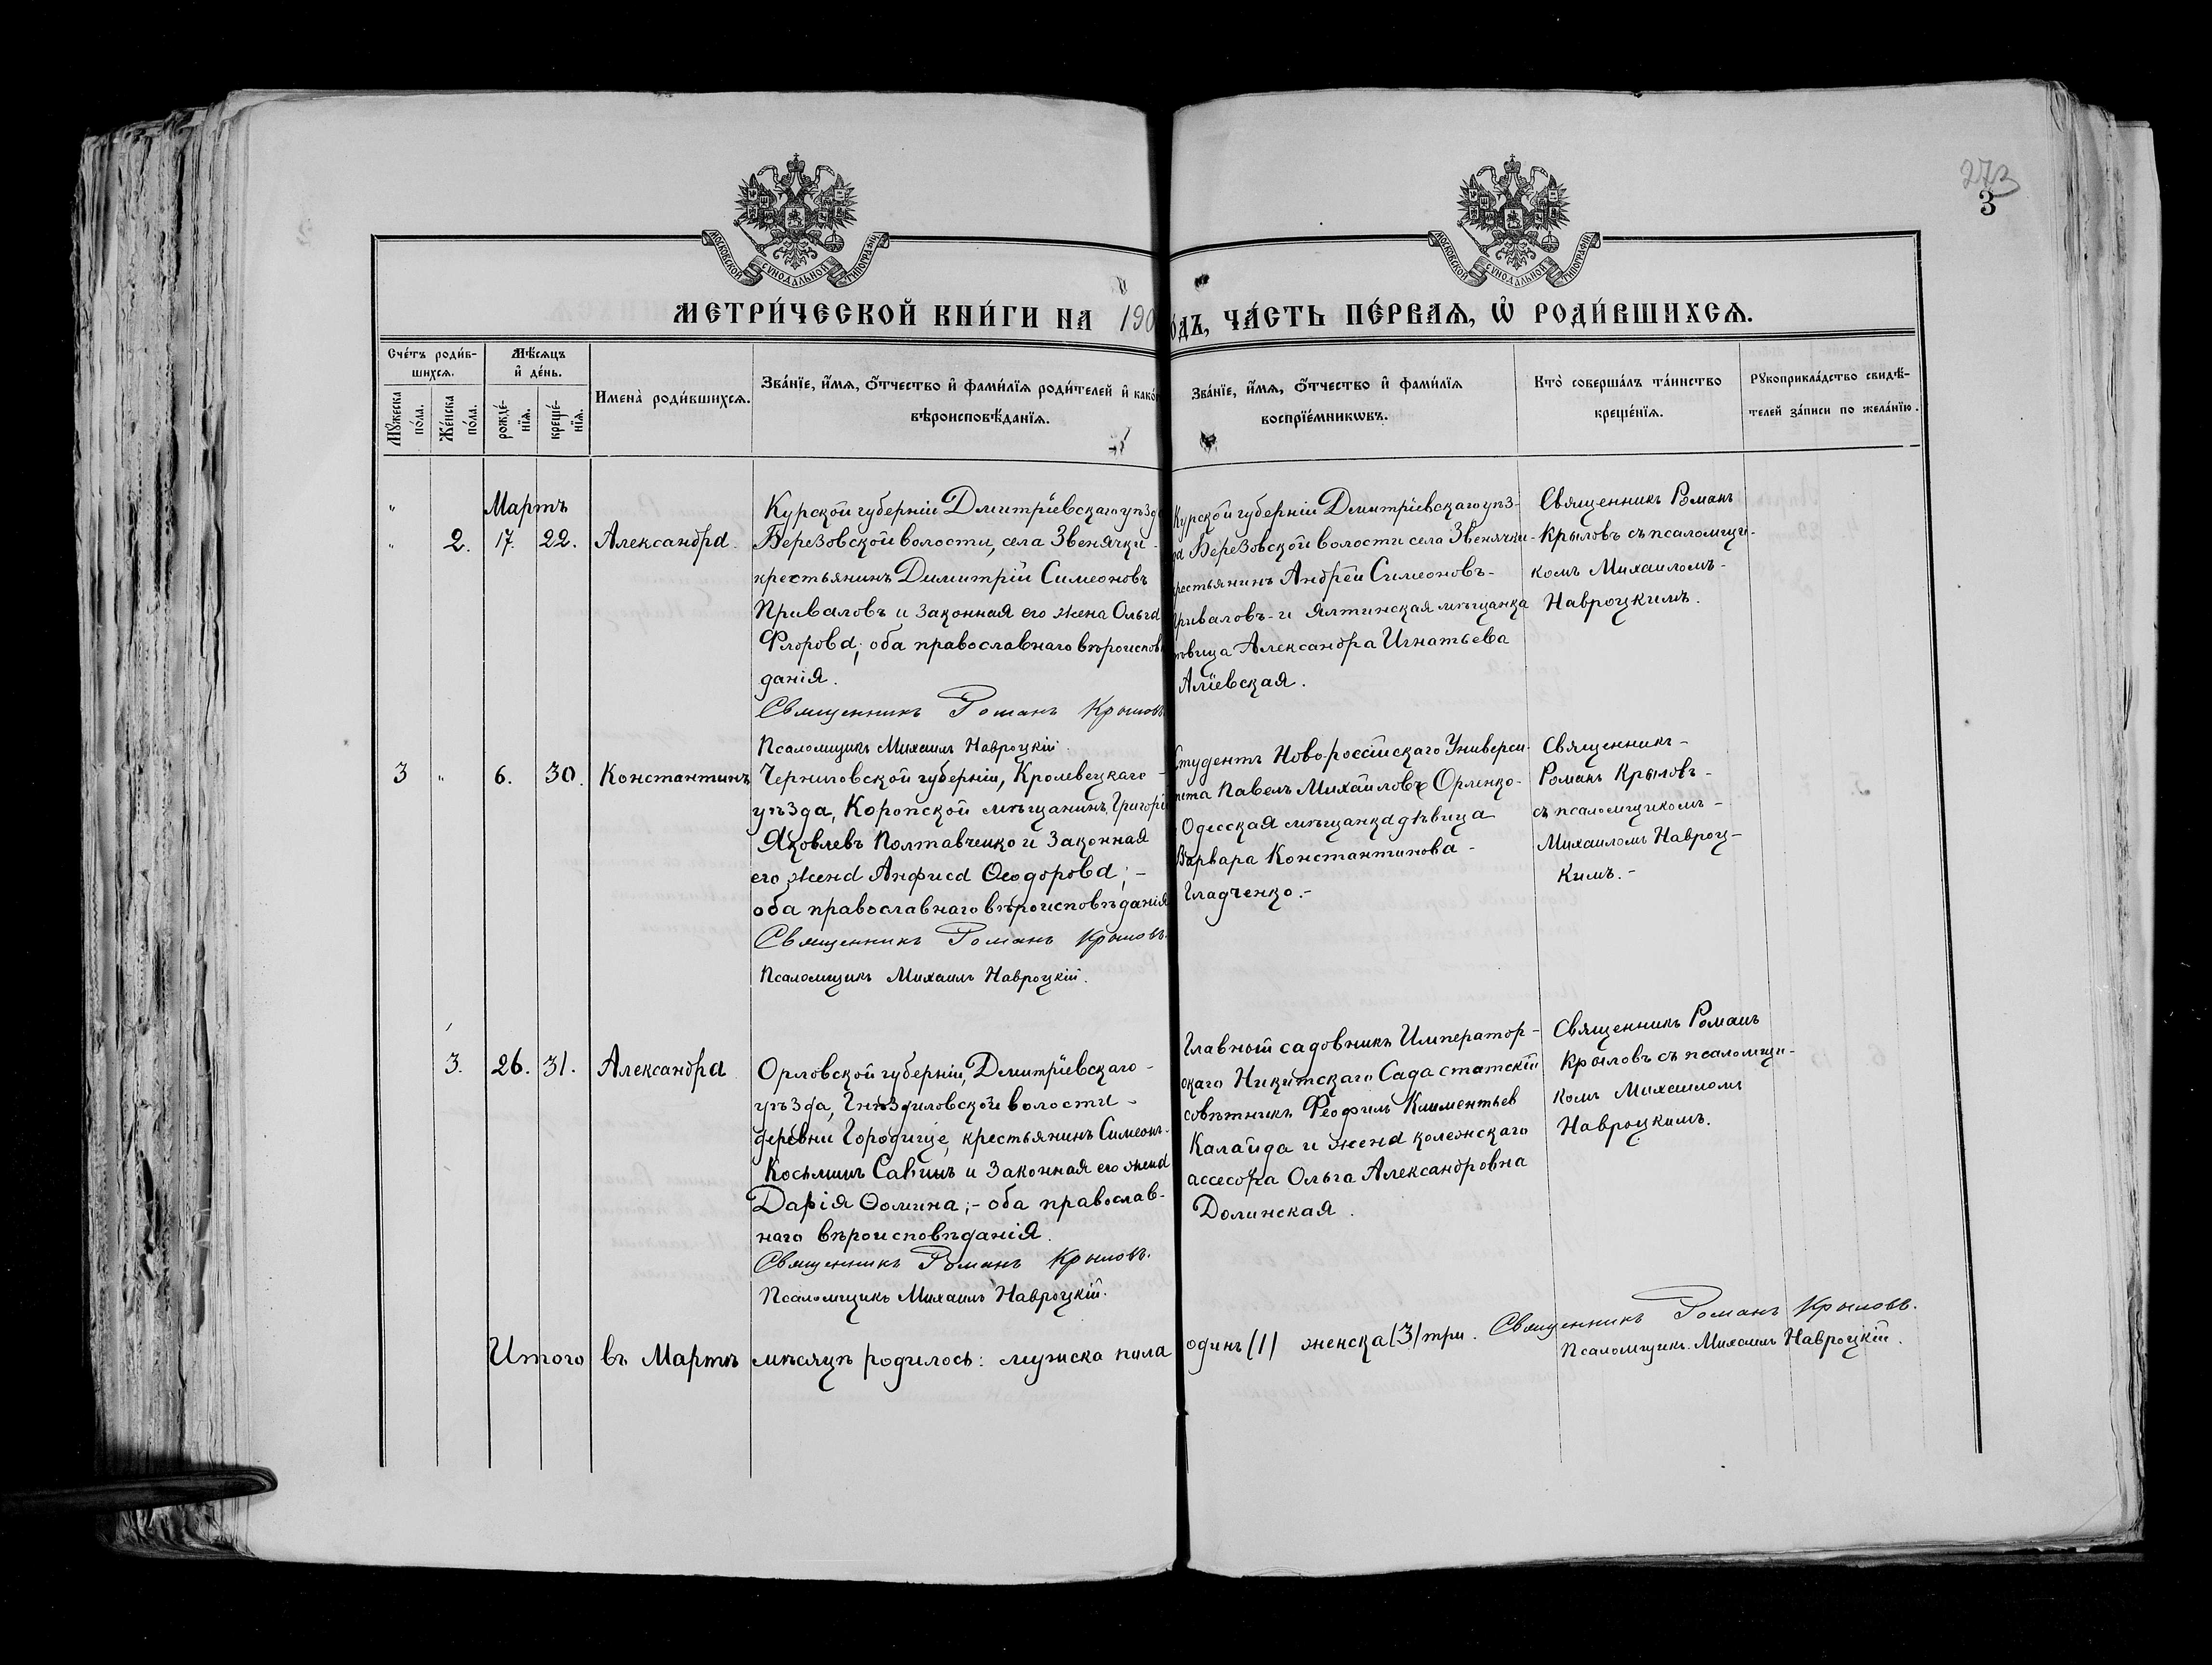 273
3
МОСКОВСКОЙ СѴНОДАЛЬНОЙ ТИПОГРАФІИ
МОСКОВСКОЙ СѴНОДАЛЬНОЙ ТИПОГРАФІИ
МЕТРИ́ЧЕСКОЙ КНИ́ГИ НА 190 о́дъ, ЧА́СТЬ ПЕ́РВАѦ, Ѡ҆ РОДИ́ВШИХСѦ.
Сче́тъ роди́в-
шихсѧ.
Мꙋ́жеска по́ла.
Же́нска по́ла.
Мѣ́сѧцъ
и҆ де́нь.
рожде́-
нїѧ.
креще́-
нїѧ.
Имена̀ роди́вшихсѧ.
Зва́нїе, и҆́мѧ, ѻ҆́тчество и҆ фами́лїѧ роди́телей и҆ како́
вѣроисповѣ́данїѧ.
Зва́нїе, и҆́мѧ, ѻ҆́тчество и҆ фами́лїѧ
воспрїе́мникѡвъ.
Кто̀ соверша́лъ та́инство
креще́нїѧ.
Рꙋкоприкла́дство свидѣ́-
телей за́писи по жела́нїю.
Мартъ
" 2. 17. 22. Александра
Курской губерніи Дмитріевскаго уѣзд
Березовской волости, села Звенячки -
крестьянинъ Димитрій Симеоновъ
Приваловъ и законная его жена Ольга
Флорова; оба православнаго вѣроисповѣ
данія.
Священникъ Романъ Крыловъ.
Псаломщикъ Михаилъ Навроцкій.
Курской губерніи Дмитріевскаго уѣз-
да Березовской волости села Звенячки -
крестьянинъ Андрей Симеоновъ -
Приваловъ - и Ялтинская мѣщанка
дѣвица Александра Игнатьева
Аліевская.
Священникъ Романъ
Крыловъ съ псаломщи-
комъ Михаиломъ -
Навроцкимъ.
3 " 6. 30. Константинъ
Черниговской губерніи, Кролевецкаго -
уѣзда, Коропской мѣщанинъ Григорій
Яковлевъ Полтавченко и законная
его жена Анфиса Ѳеодорова; -
оба православнаго вѣроисповѣданія
Священникъ Романъ Крыловъ.
Псаломщикъ Михаилъ Навроцкій.
Студентъ Новороссійскаго Универси-
тета Павелъ Михайловъ Орленко -
Одесская мѣщанка дѣвица
Варвара Константинова -
Гладченко. -
Священникъ -
Романъ Крыловъ -
съ псаломщикомъ -
Михаиломъ Навроц-
кимъ. -
3. 26. 31. Александра
Орловской губерніи, Дмитріевскаго -
уѣзда, Гнѣздиловской волости -
деревни Городище, крестьянинъ Симеонъ -
Косьминъ Савинъ и законная его жена
Дарія Ѳомина; - оба православ-
наго вѣроисповѣданія.
Священникъ Романъ Крыловъ.
Псаломщикъ Михаилъ Навроцкій.
Главный садовникъ Император-
скаго Никитскаго Сада статскій
совѣтникъ Феофилъ Климентьев
Калайда и жена колежскаго
ассесора Ольга Александровна
Долинская.
Священникъ Романъ
Крыловъ съ псаломщи-
комъ Михаиломъ
Навроцкимъ.
Итого въ Мартѣ мѣсяцѣ родилось: мужска пола одинъ (1) женска (3) три. Священникъ Романъ Крыловъ.
Псаломщикъ Михаилъ Навроцкій.